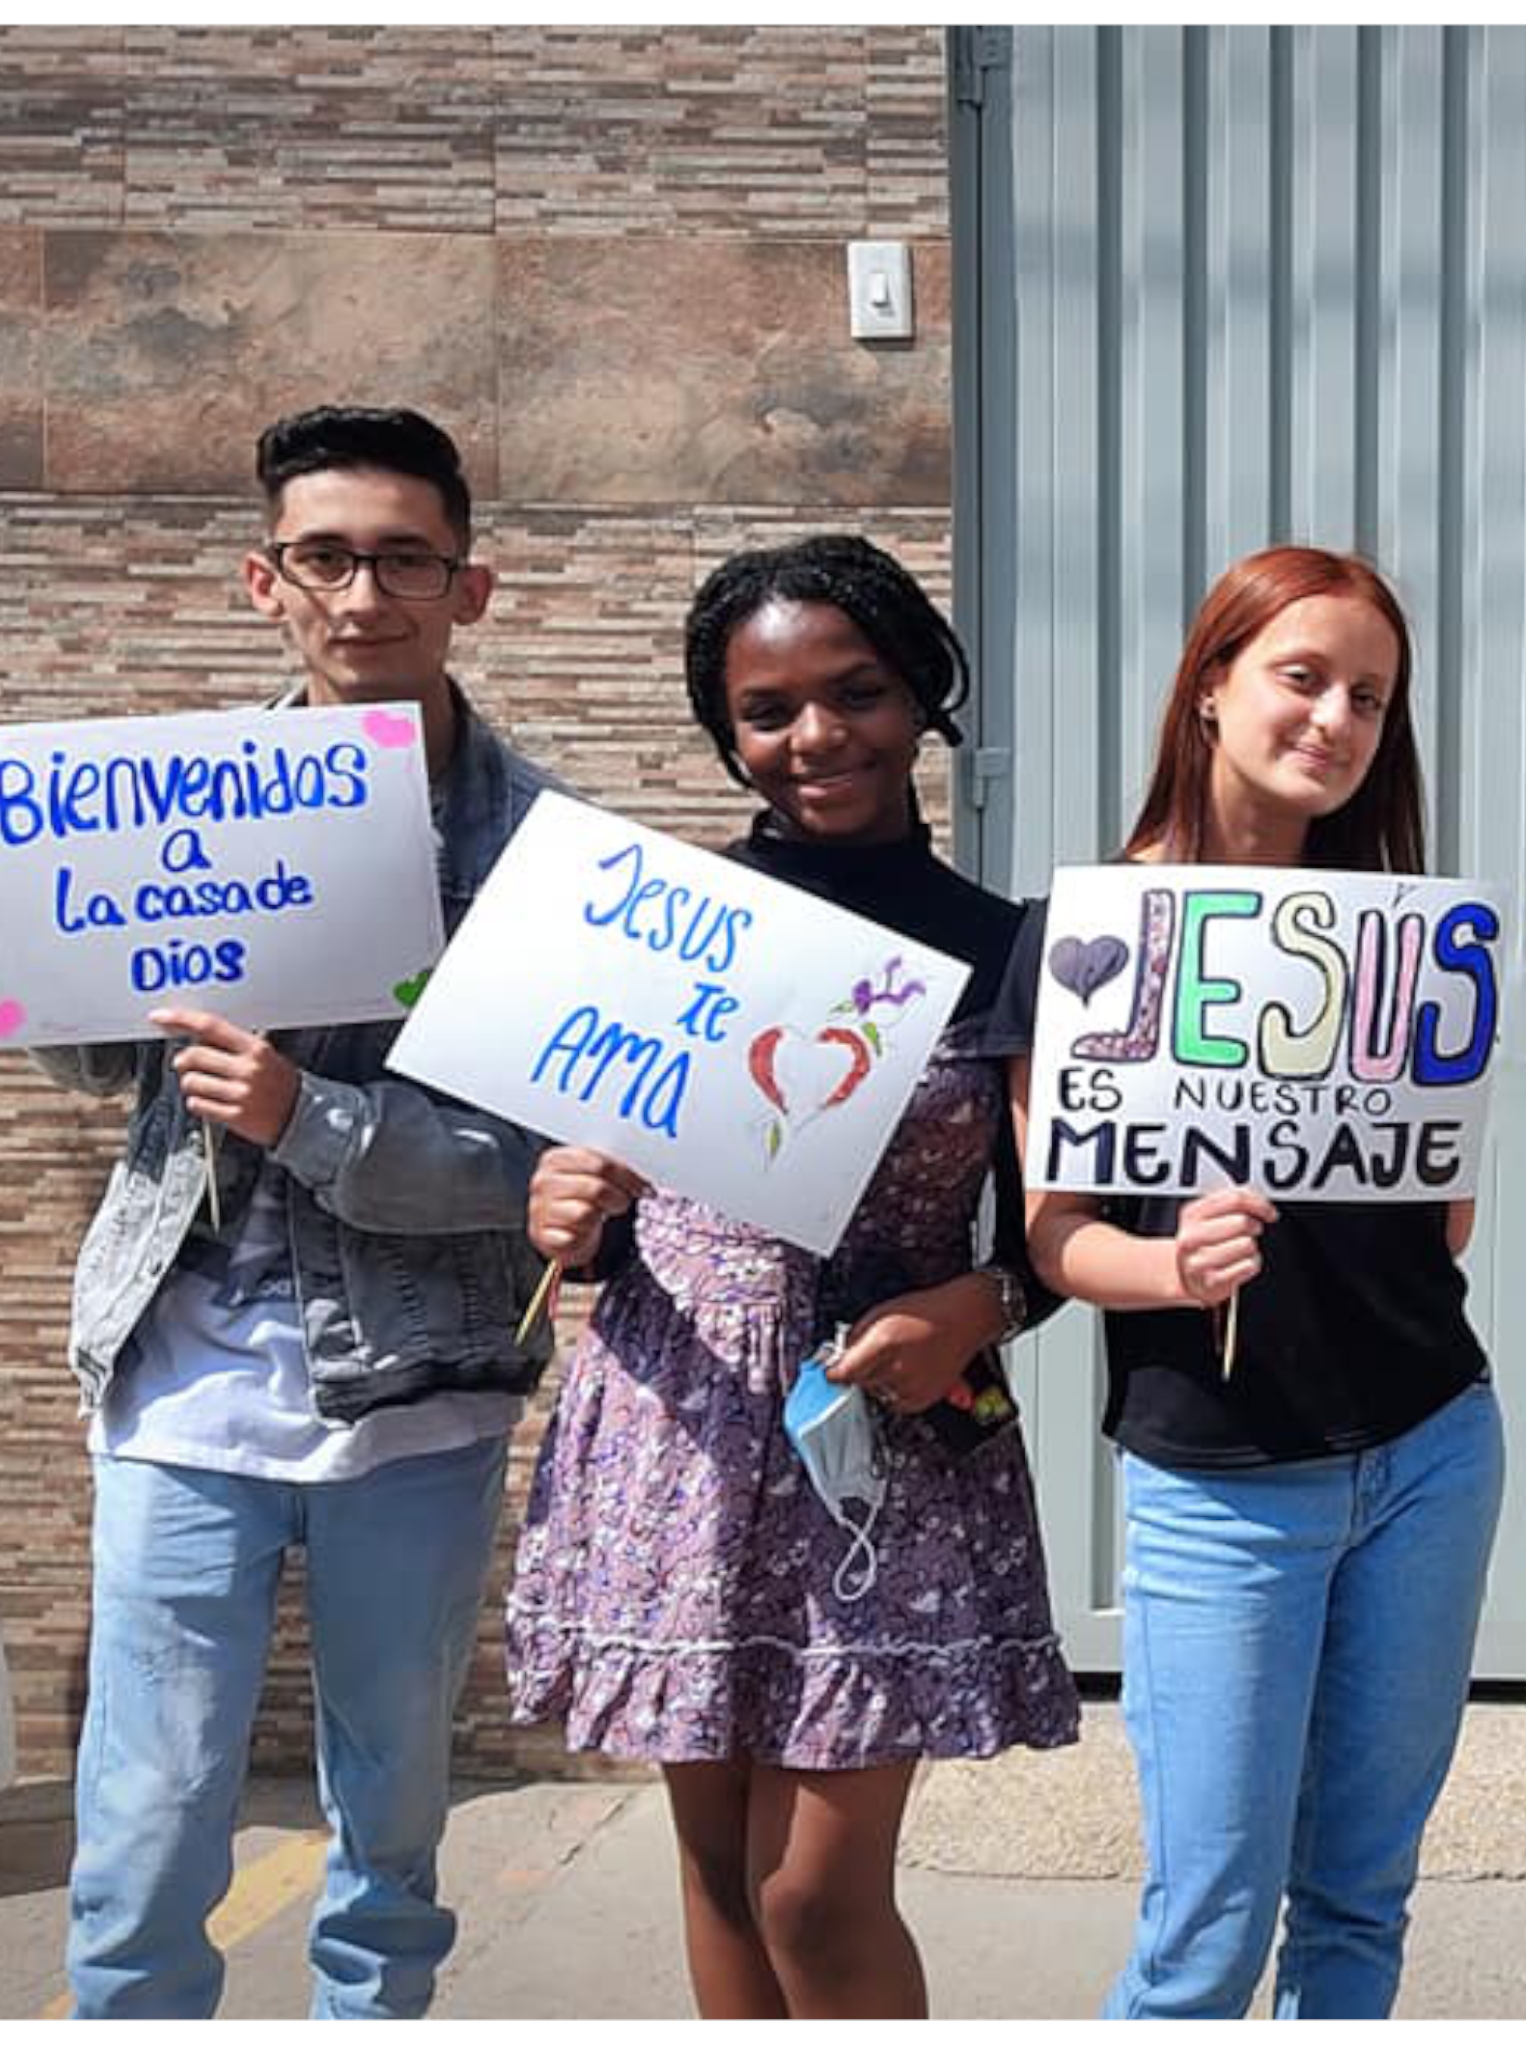 Bienvenidos
a
La casa de
Dios
Jesus
Te
AMA
JESÚS
ES NUESTRO
MENSAJE